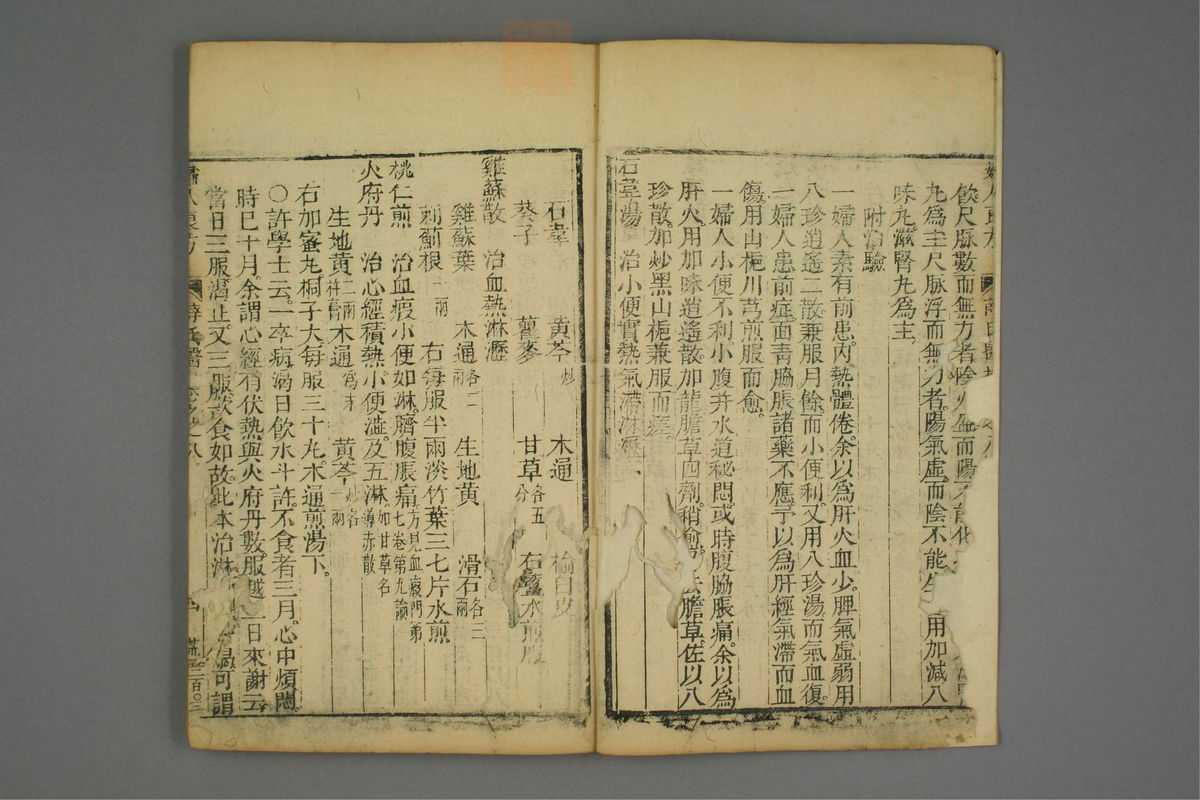 飲尺脉數而無力者陰火盛而陽不能化
九爲主尺脉浮而無力者陽氣虛而陰不能生用加減八
味丸滋腎丸爲主
附治驗
一婦人素有前患內熱體倦余以爲肝火血少脾氣虛弱用
八珍逍遙二散兼服月餘而小便利又用八珍湯而氣血復
一婦人患前症面青脇脹諸藥不應予以爲肝經氣滯而血
傷用山梔川芎煎服而愈
一婦人小便不利小腹并水道秘悶或時腹脇脹痛余以爲
肝火用加味逍遙散加龍膽草四劑稍愈膽草佐以八
珍散加炒黑山梔兼服而痊
石葦湯 治小便實熱氣滯淋瀝
石葦 黃芩炒 木通 榆白皮
葵子 瞿麥 甘草各五分 右薑水煎服
雞蘇散 治血熱淋瀝
雞蘇葉 木通各二兩 生地黃 滑石各三兩
刺薊根一兩 右每服半兩淡竹葉三七片水煎
桃仁煎 治血瘕小便如淋臍腹脹痛方見血瘕門第七卷第九論
火府丹 治心經積熱小便澁及五淋加甘草名導赤散
生地黃二兩杵膏 木通爲末 黃芩炒各一兩
右加蜜丸桐子大每服三十丸木通煎湯下
○許學士云一卒病渴日飲水斗許不食者三月心中煩悶
時巳十月余謂心經有伏熱與火府丹數服越二日來謝云
當日三服渴止又三服飲食如故此本治淋渴可謂
婦人良方 薛氏醫 卷之八